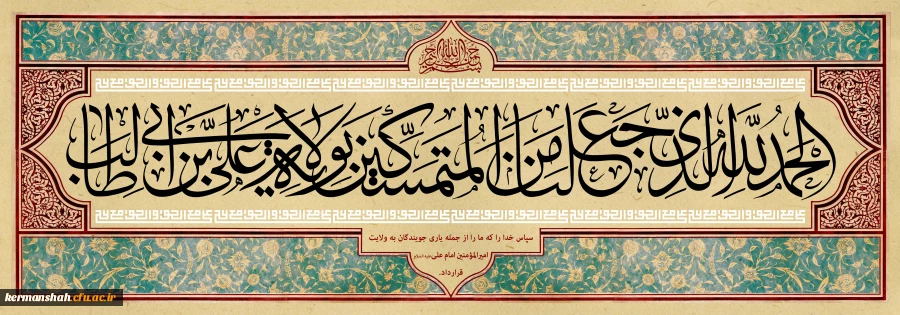 بسم الله الرحمن الرحیم
الحمد لله الذی جعلنا من المتمسکین بولایة علی بن ابی طالب
سپاس خدا را که ما را از جمله یاری جویندگان به ولایت
امیرالمؤمنین امام علی علیه السلام
قرارداد.
kermanshah.cfu.ac.ir